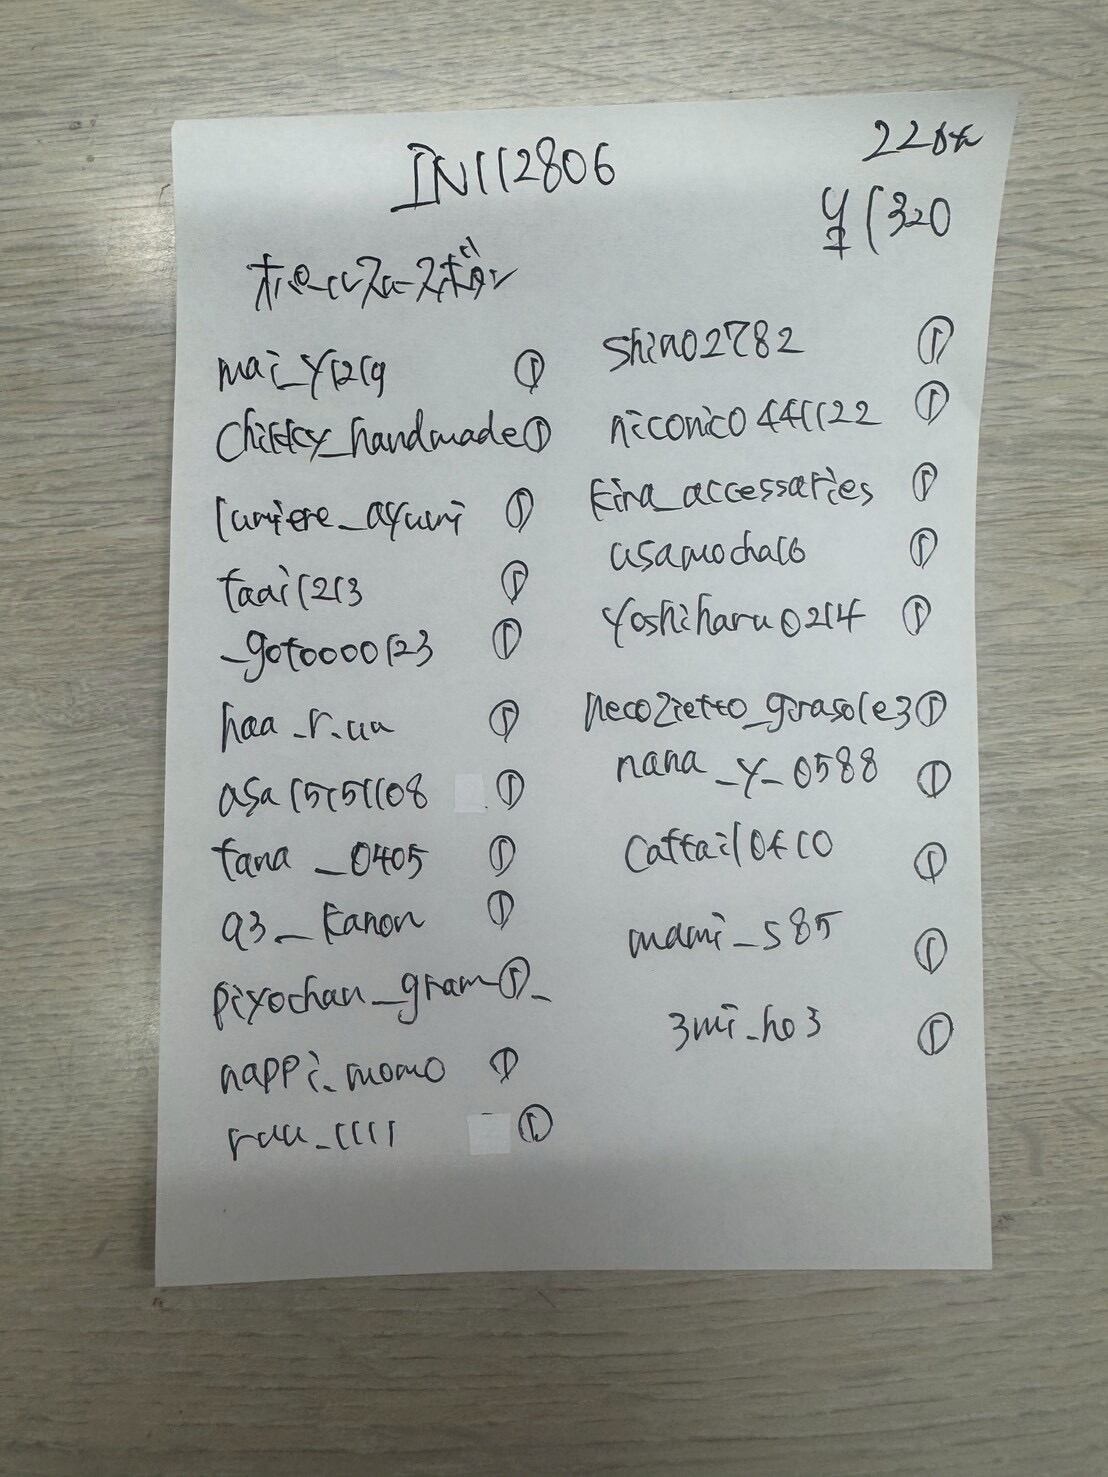 IN112806
22点
¥1320
mai_y1219 ①
chikky_handmade ①
lumiere_ayumi ①
taai1213 ①
_goto0000123 ①
haa_r.uu ①
asa15151108 ①
tana_0405 ①
a3_kanon ①
piyochan_gram_ ①
nappi_momo ①
ruu_1111 ①
shino2782 ①
niconico441122 ①
kira_accessaries ①
asamocha16 ①
yoshiharu0214 ①
necozietto_girasole3 ①
nana_y_0588 ①
cattail0410 ①
mami_s85 ①
3mi_ho3 ①